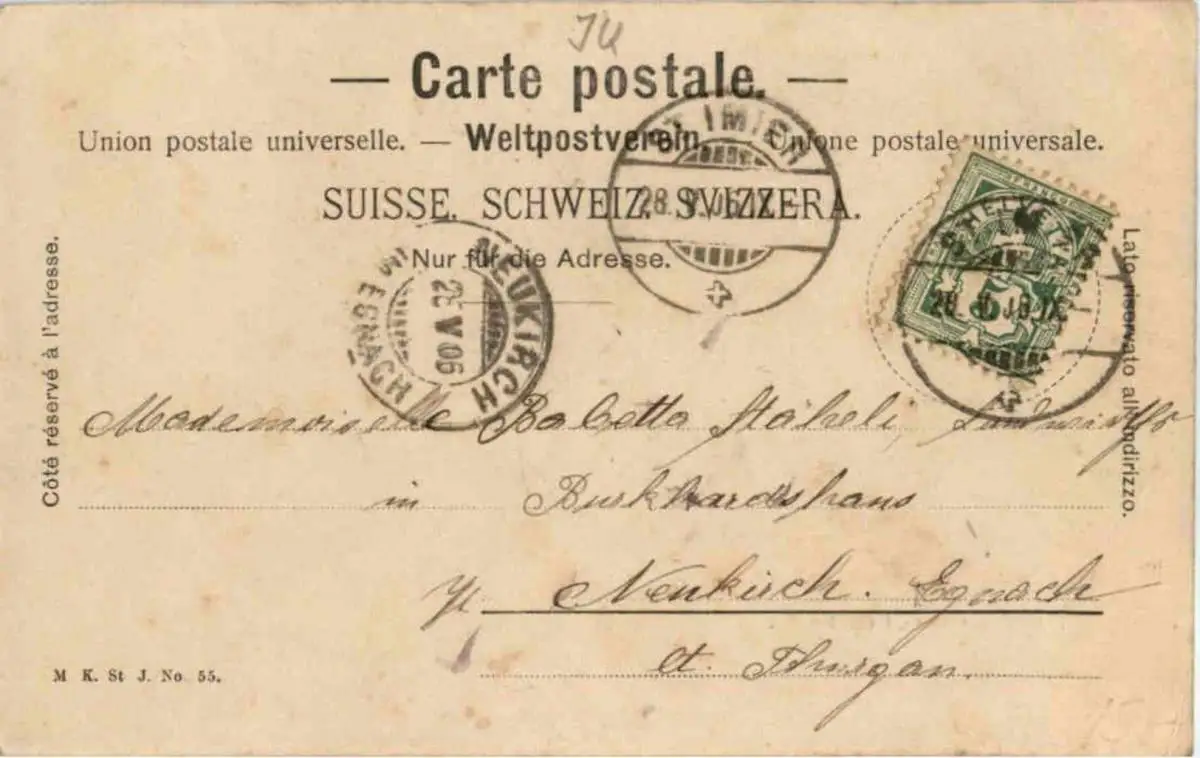 JU
— Carte postale. —
Union postale universelle. — Weltpostverein. Unione postale universale.
SUISSE. SCHWEIZ. SVIZZERA.
Nur für die Adresse.
Côté réservé à l'adresse.
Lato riservato all'indirizzo.
ST. IMIER
28. V. 06. IX
NEUKIRCH
28 V 06
EGNACH
HELVETIA
5
28. V. 06. IX
Mademoiselle Babetta Stäheli, Landwirths
in Burkhardshaus
Neukirch. Egnach
ct. Thurgau.
M K. St J. No 55.